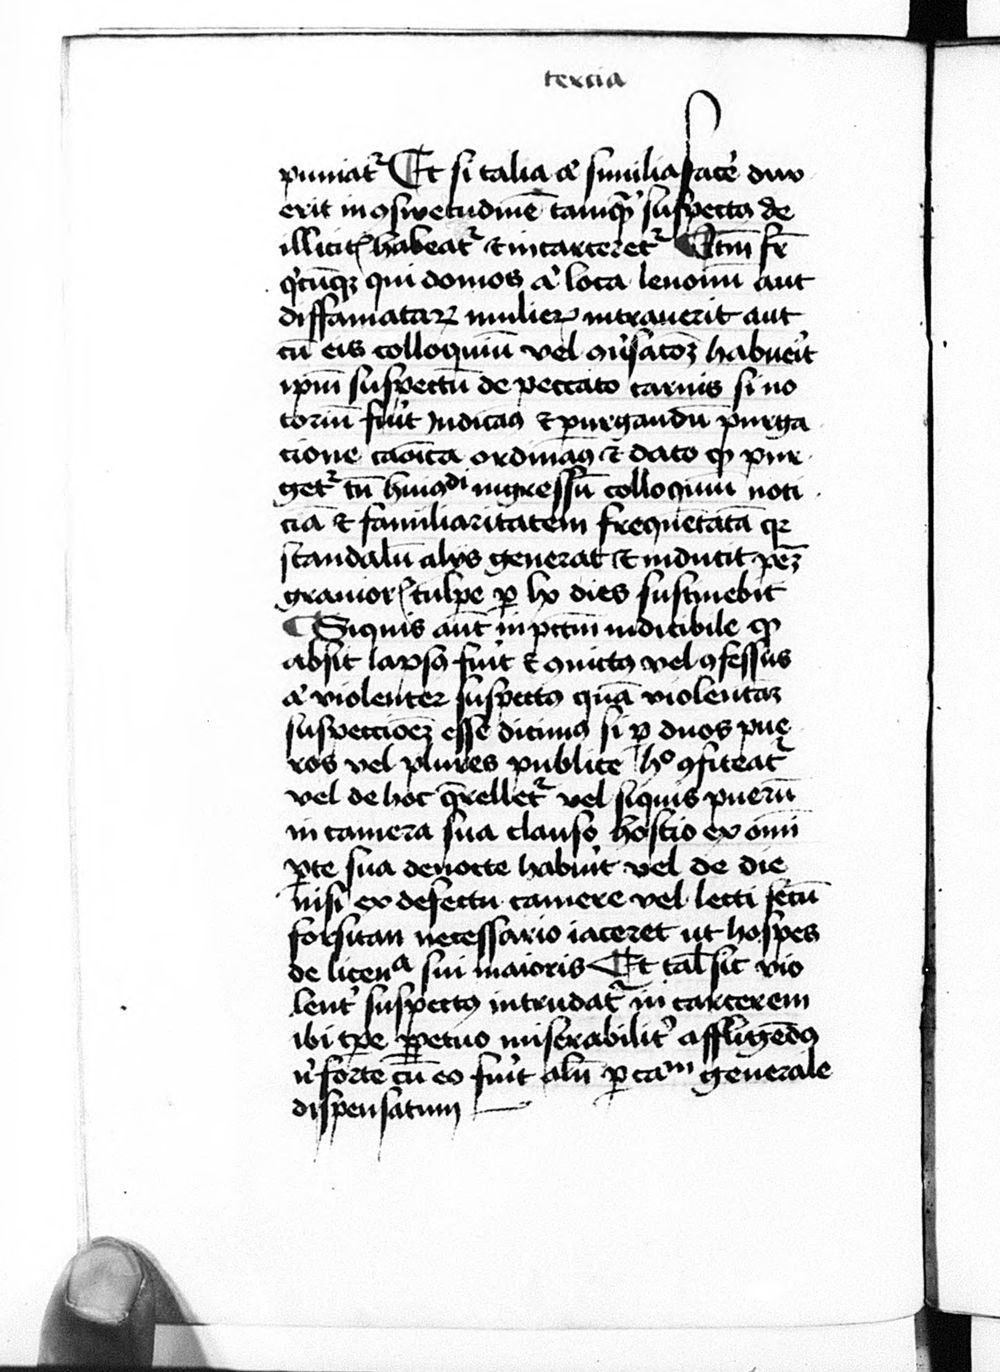 tercia
puniatr Et si talia aut similia facere dux
erit in consuetudinem tamquam suspectus de
illicitis habeatr et incarceretr Item fr
quicumque qui domos aut loca lenonum aut
diffamatarum mulierum intraverit aut
cum eis colloquium vel habuerit
ipm suspectum de peccato carnis si no
torium fuerit iudicamus et purgandum purga
cione canonica ordinamus et dato quod pur
getr tn huiusmodi ingressum colloquium noti
ciam et familiaritatem frequentatam quia
scandalum aliis generat et inducit penam
gravioris culpe per lx dies sustinebit
Siquis autem in pctm indicibile quod
absit lapsus fuerit et convictus vel confessus
aut violenter suspectus quam violentam
suspectionem esse dicimus si per duos pue
ros vel plures publice hoc confiteatr
vel de hoc querelletr vel siquis puerum
in camera sua clauso hostio ex omni
parte sua de nocte habuerit vel de die
nisi ex defectu camere vel lecti secum
forsitan necessario iaceret ut hospes
de licencia sui maioris Et talis sic vio
lenter suspectus intrudatr in carcerem
ibi tempore perpetuo miserabiliter affligendus
nisi forte cum eo fuerit aliud per capitulum generale
dispensatum